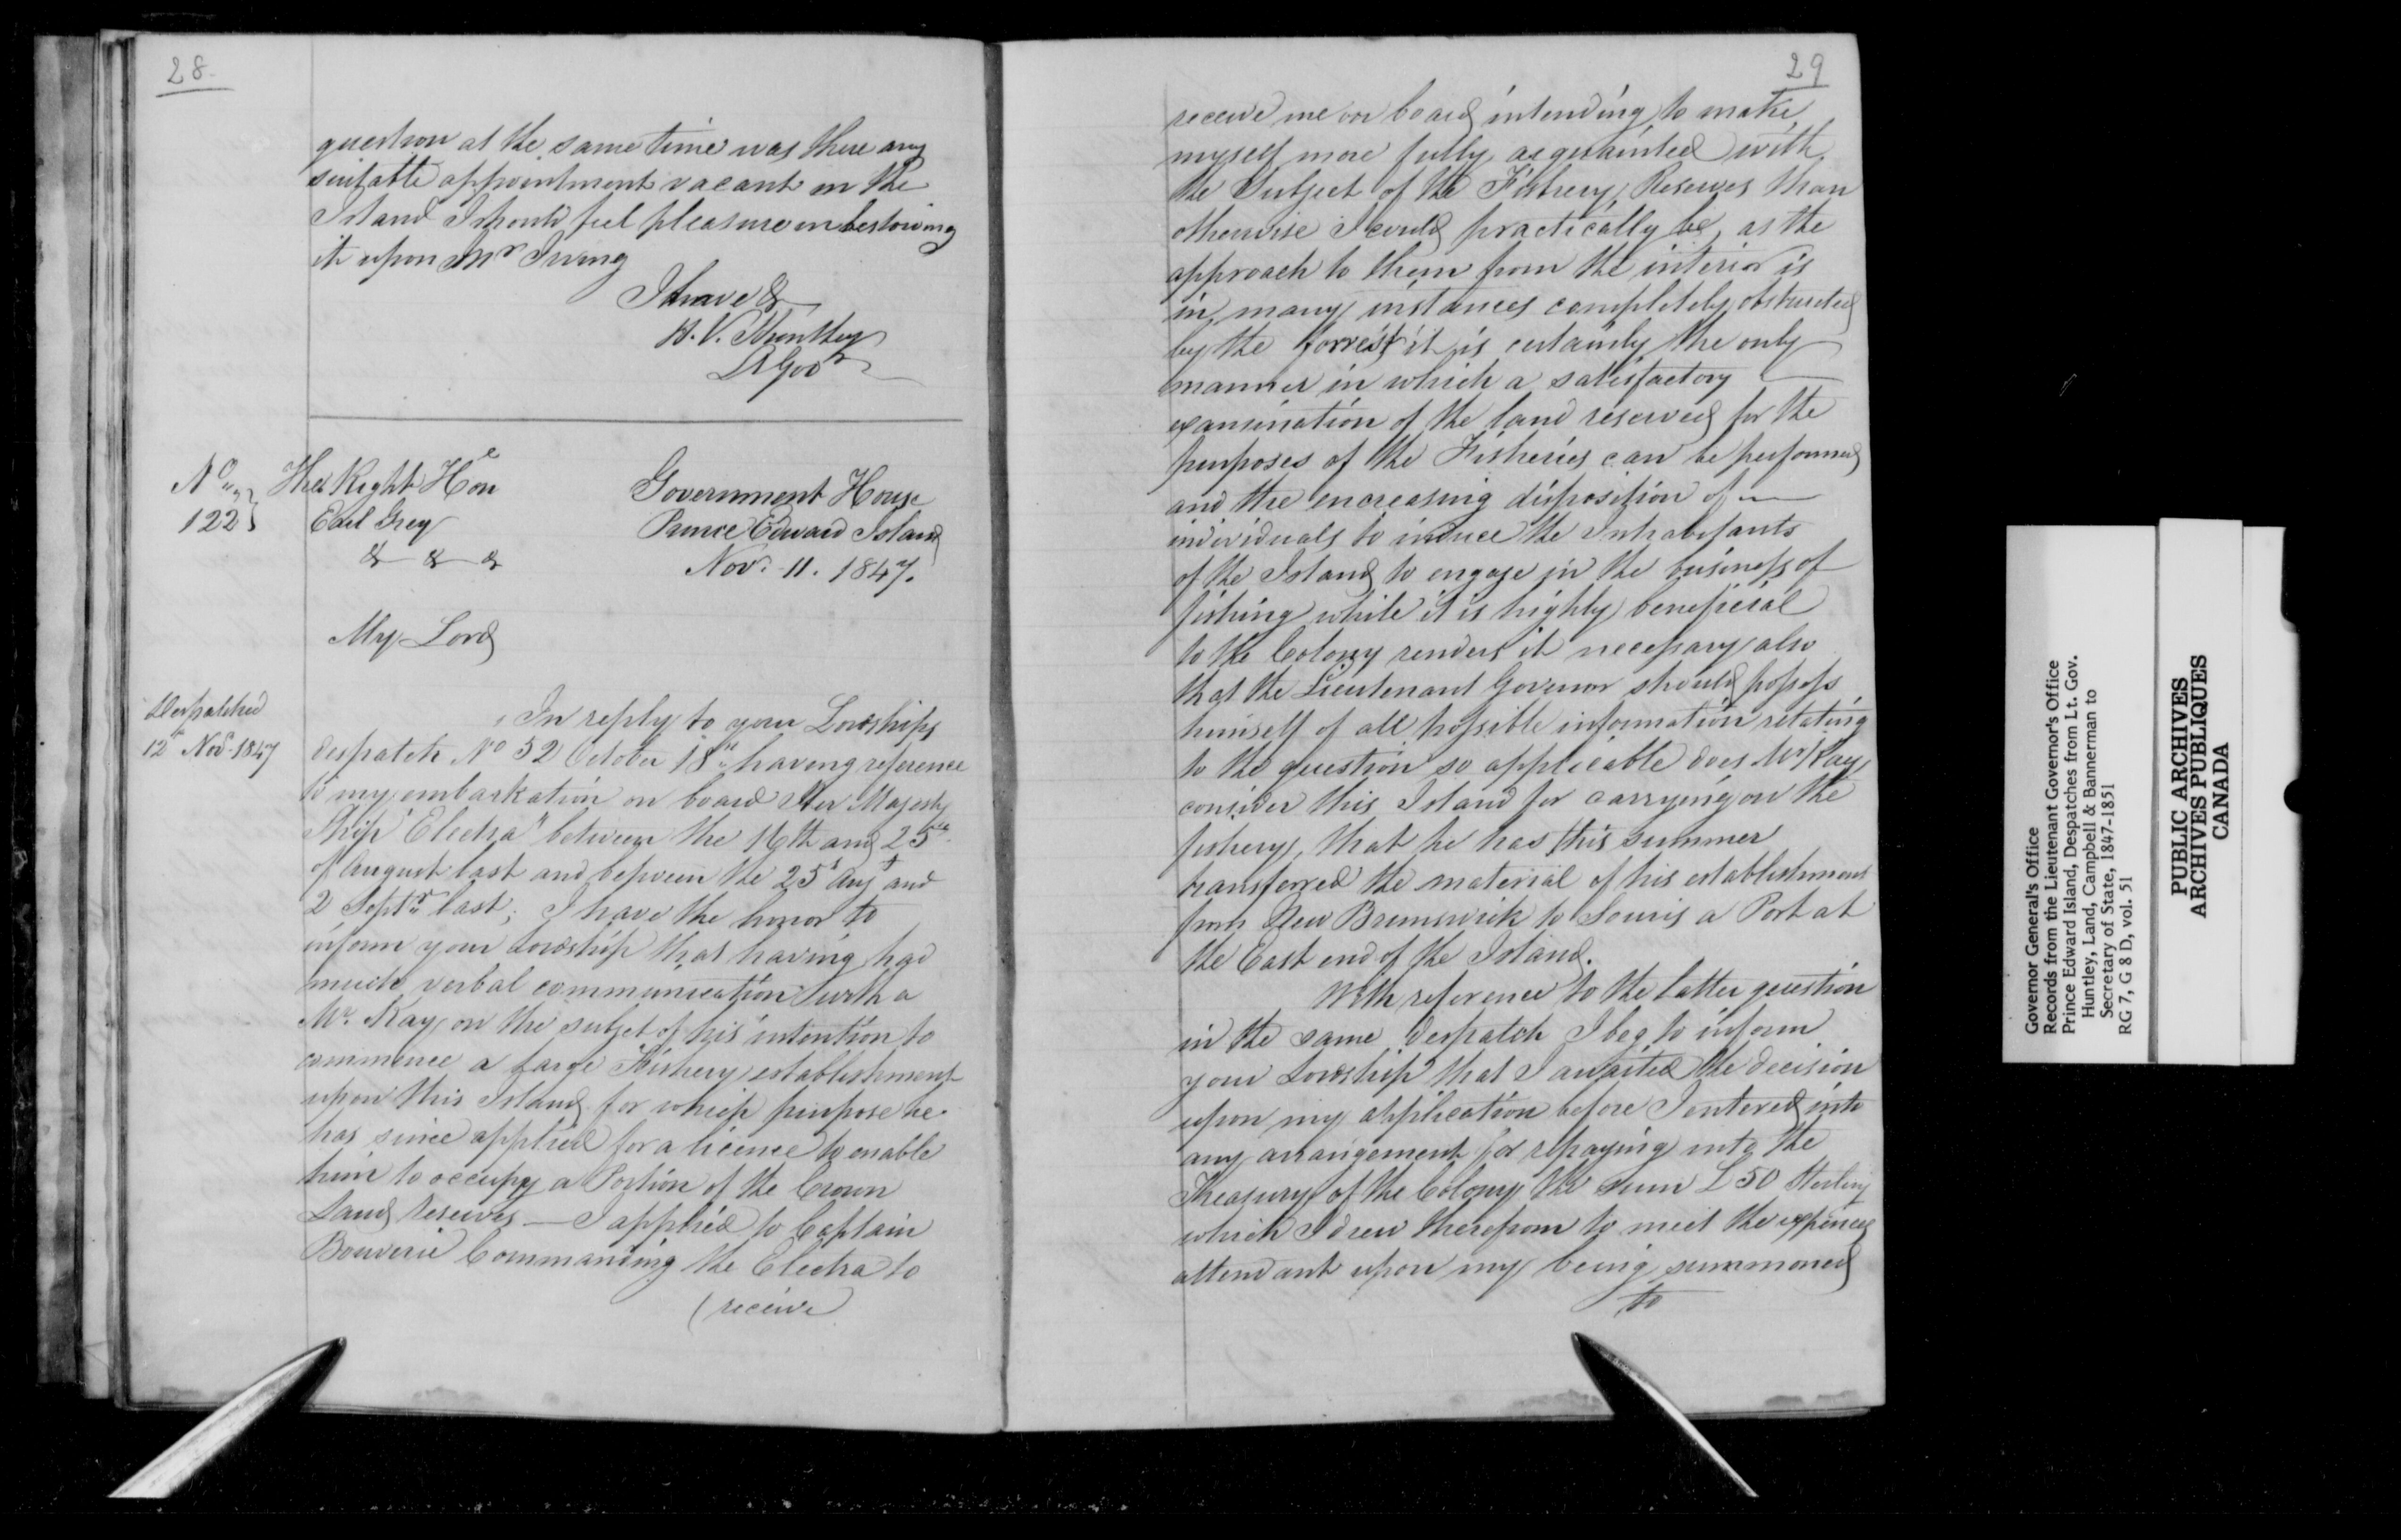 28.
question at the same time was there any
suitable appointment vacant on the
Island I should feel pleasure in bestowing
it upon Mr Irving
I have &
H. V. Huntley
Lt Govr
No 122
The Right Hone
Earl Grey
& & &
Government House
Prince Edward Island
Nov. 11. 1847.
My Lord
Despatched
12th Nov. 1847
In reply to your Lordships
despatch No 52 October 18th having reference
to my embarkation on board Her Majesty
Ship "Electra" between the 16th and 25th
of August last and between the 25t Augt and
2 Septr last; I have the honor to
inform your Lordship that having had
much verbal communication with a
Mr. Kay, on the subjet of his intention to
commence a large Fishery establishment
upon this Island for which purpose he
has since applied for a licence to enable
him to occupy a Portion of the Crown
Land reserves — I applied to Captain
Bouverie Commanding the Electra to
(receive
29
receive me on board intending to make
myself more fully acquainted with
the Subject of the Fishery Reserves than
otherwise I could practically be, as the
approach to them from the interior is
in many instances completely obstructed
by the forrest it is certainly the only
manner in which a satisfactory
examination of the land reserved for the
purposes of the Fisheries can be performed
and the encreasing disposition of
individuals to induce the Inhabitants
of the Island to engage in the business of
fishing while it is highly beneficial
to the Colony renders it necessary also
that the Lieutenant Governor should possess
himself of all possible information relating
to the question so applicable does Mr Kay
consider this Island for carrying on the
fishery, that he has this summer
transferred the material of his establishment
from New Brunswick to Souris a Port at
the East end of the Island.
With reference to the latter question
in the same despatch I beg to inform
your Lordship that I awaited the decision
upon my application before I entered into
any arrangement for repaying into the
Treasury of the Colony the sum £50 Sterling
which I drew therefrom to meet the expences
attendant upon my being summoned
to
Governor General's Office
Records from the Lieutenant Governor's Office
Prince Edward Island, Despatches from Lt. Gov.
Huntley, Land, Campbell & Bannerman to
Secretary of State, 1847-1851
RG 7, G 8 D, vol. 51
PUBLIC ARCHIVES
ARCHIVES PUBLIQUES
CANADA